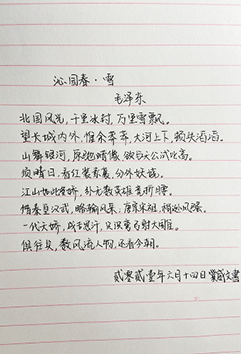 沁园春·雪
毛泽东
北国风光，千里冰封，万里雪飘。
望长城内外，惟余莽莽，大河上下，顿失滔滔。
山舞银蛇，原驰蜡象，欲与天公试比高。
须晴日，看红装素裹，分外妖娆。
江山如此多娇，引无数英雄竞折腰。
惜秦皇汉武，略输文采，唐宗宋祖，稍逊风骚。
一代天骄，成吉思汗，只识弯弓射大雕。
俱往矣，数风流人物，还看今朝。
贰零贰壹年六月十四日